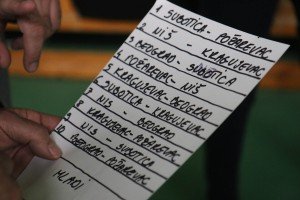 1. SUBOTICA - POŽAREVAC
2. NIŠ - KRAGUJEVAC
3. BEOGRAD - SUBOTICA
4. POŽAREVAC - NIŠ
5. KRAGUJEVAC - BEOGRAD
6. SUBOTICA - KRAGUJEVAC
7. NIŠ - BEOGRAD
8. KRAGUJEVAC - POŽAREVAC
9. NIŠ - SUBOTICA
10. BEOGRAD - POŽAREVAC
MLADI